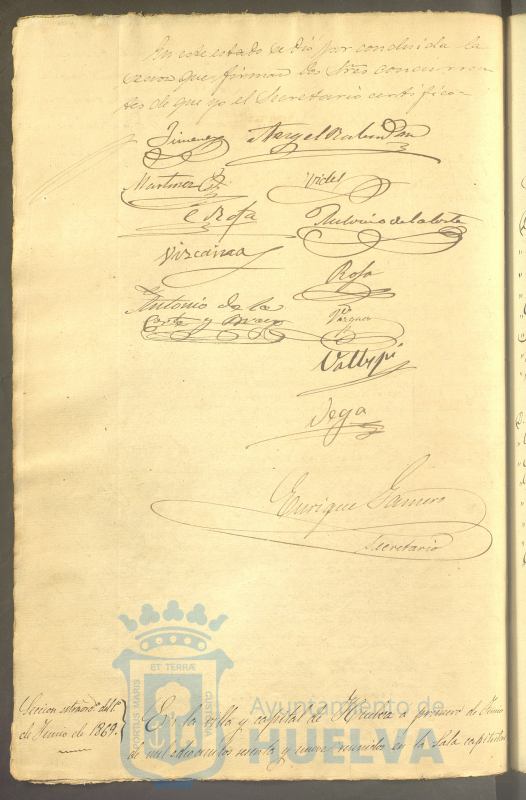 En este estado se dió por concluida la
sesion que firman los Sres concurren
tes de que yo el Secretario certifico.
Jimenez Angel Rubio
Martinez Videl
C Rofa Antonio de la Corte
Vizcaino
Rofa
Antonio de la
Corte y Bravo Vazquez
Vallespí
Vega
Enrique Gamero
Secretario
ET TERRÆ
PORTUS MARIS
CUSTODIA
Ayuntamiento de
HUELVA
Seccion estraordª del 1º
de Junio de 1869.
En la villa y capital de Huelva a primero de Junio
de mil ochocientos sesenta y nueve reunidos en la Sala capitular